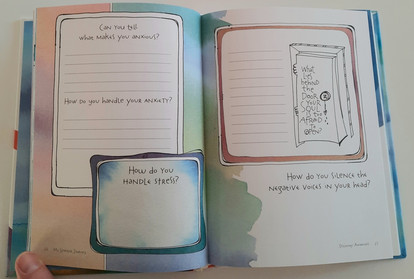 Can you tell
what makes you anxious?
How do you handle your anxiety?
How do you
handle stress?
What
lies
behind
the
door
of your
SOUL
afraid
to
open?
How do you silence the
negative voices in your head?